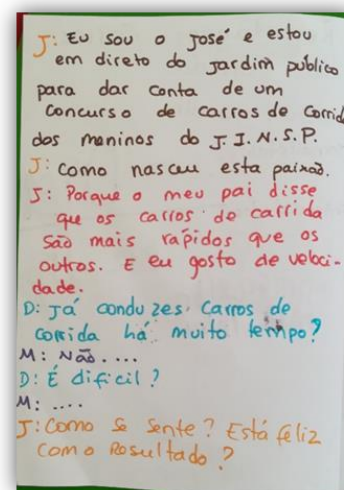 J: Eu sou o José e estou
em direto do jardim público
para dar conta de um
concurso de carros de corrid
dos meninos do J.I.N.S.P.
J: Como nasceu esta paixão.
S: Porque o meu pai disse
que os carros de carrida
são mais rápidos que os
outros. E eu gosto de veloci-
dade.
D: Já conduzes carros de
corrida há muito tempo?
M: Não....
D: É dificil?
M: ....
J: Como se sente? Está feliz
com o Resultado?